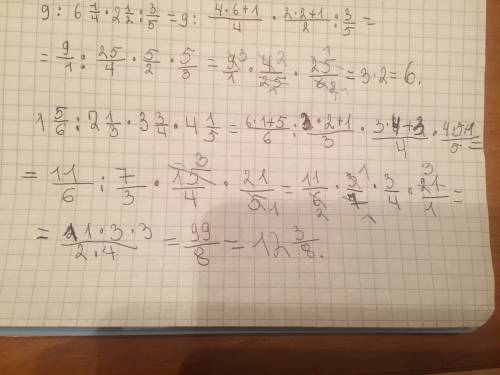 9 : 6 1/4 · 2 1/2 : 3/5 = 9 : (4·6+1)/4 · (2·2+1)/2 : 3/5 =
= 9/1 : 25/4 · 5/2 · 5/3 = 9³/1 · 4²/25 · 25¹/6₂₁ = 3·2 = 6.
1 5/6 : 2 1/3 · 3 3/4 · 4 1/5 = (6·1+5)/6 : (3·2+1)/3 · (3·4+3)/4 · 4·5+1/5 =
= 11/6 : 7/3 · 15³/4 · 21/5₁ = 11/6₂ · 3¹/7₁ · 3/4 · 21³/1 =
= (11·3·3)/(2·4) = 99/8 = 12 3/8.